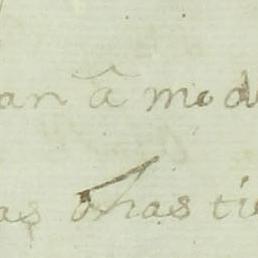 an â mod
as othas tie